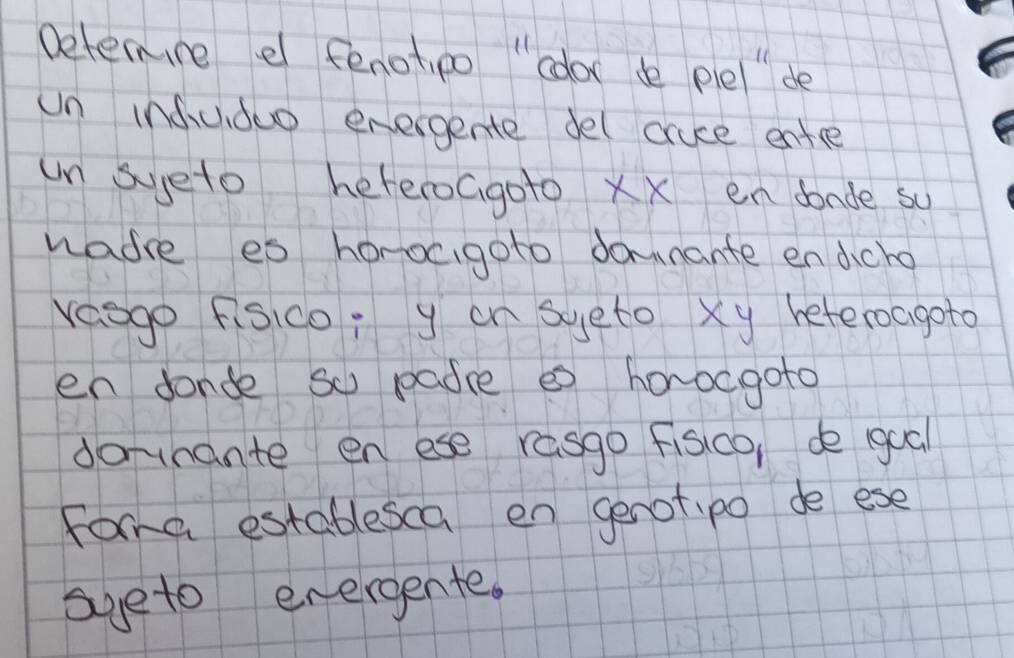 Determine el fenotipo "color de piel" de
un individuo emergente del cruce entre
un sujeto heterocigoto XX en donde su
madre es homocigoto dominante en dicho
rasgo físico; y un sujeto xy heterocigoto
en donde su padre es homocigoto
dominante en ese rasgo físico, de igual
forma establesca en genotipo de ese
sujeto emergente.